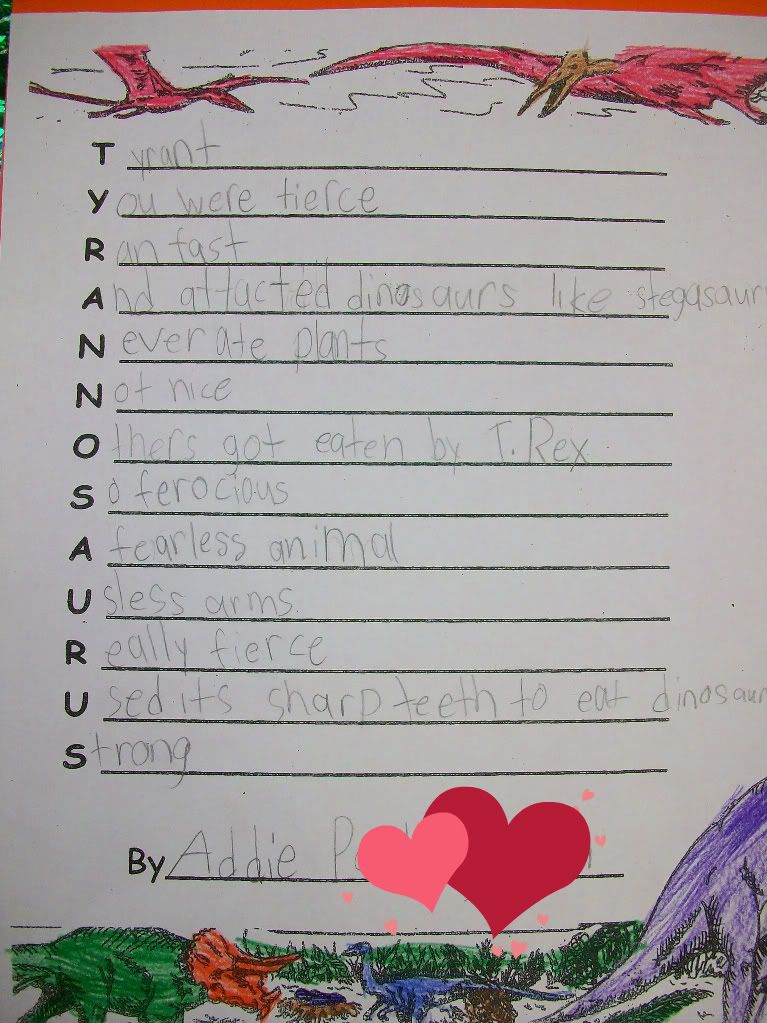 Tyrant
You were fierce
Ran fast
And attacted dinosaurs like stegasaur
Never ate plants
Not nice
Others got eaten by T.Rex
So ferocious
A fearless animal
Usless arms.
Really fierce
Used its sharp teeth to eat dinosaur
Strong
By Addie